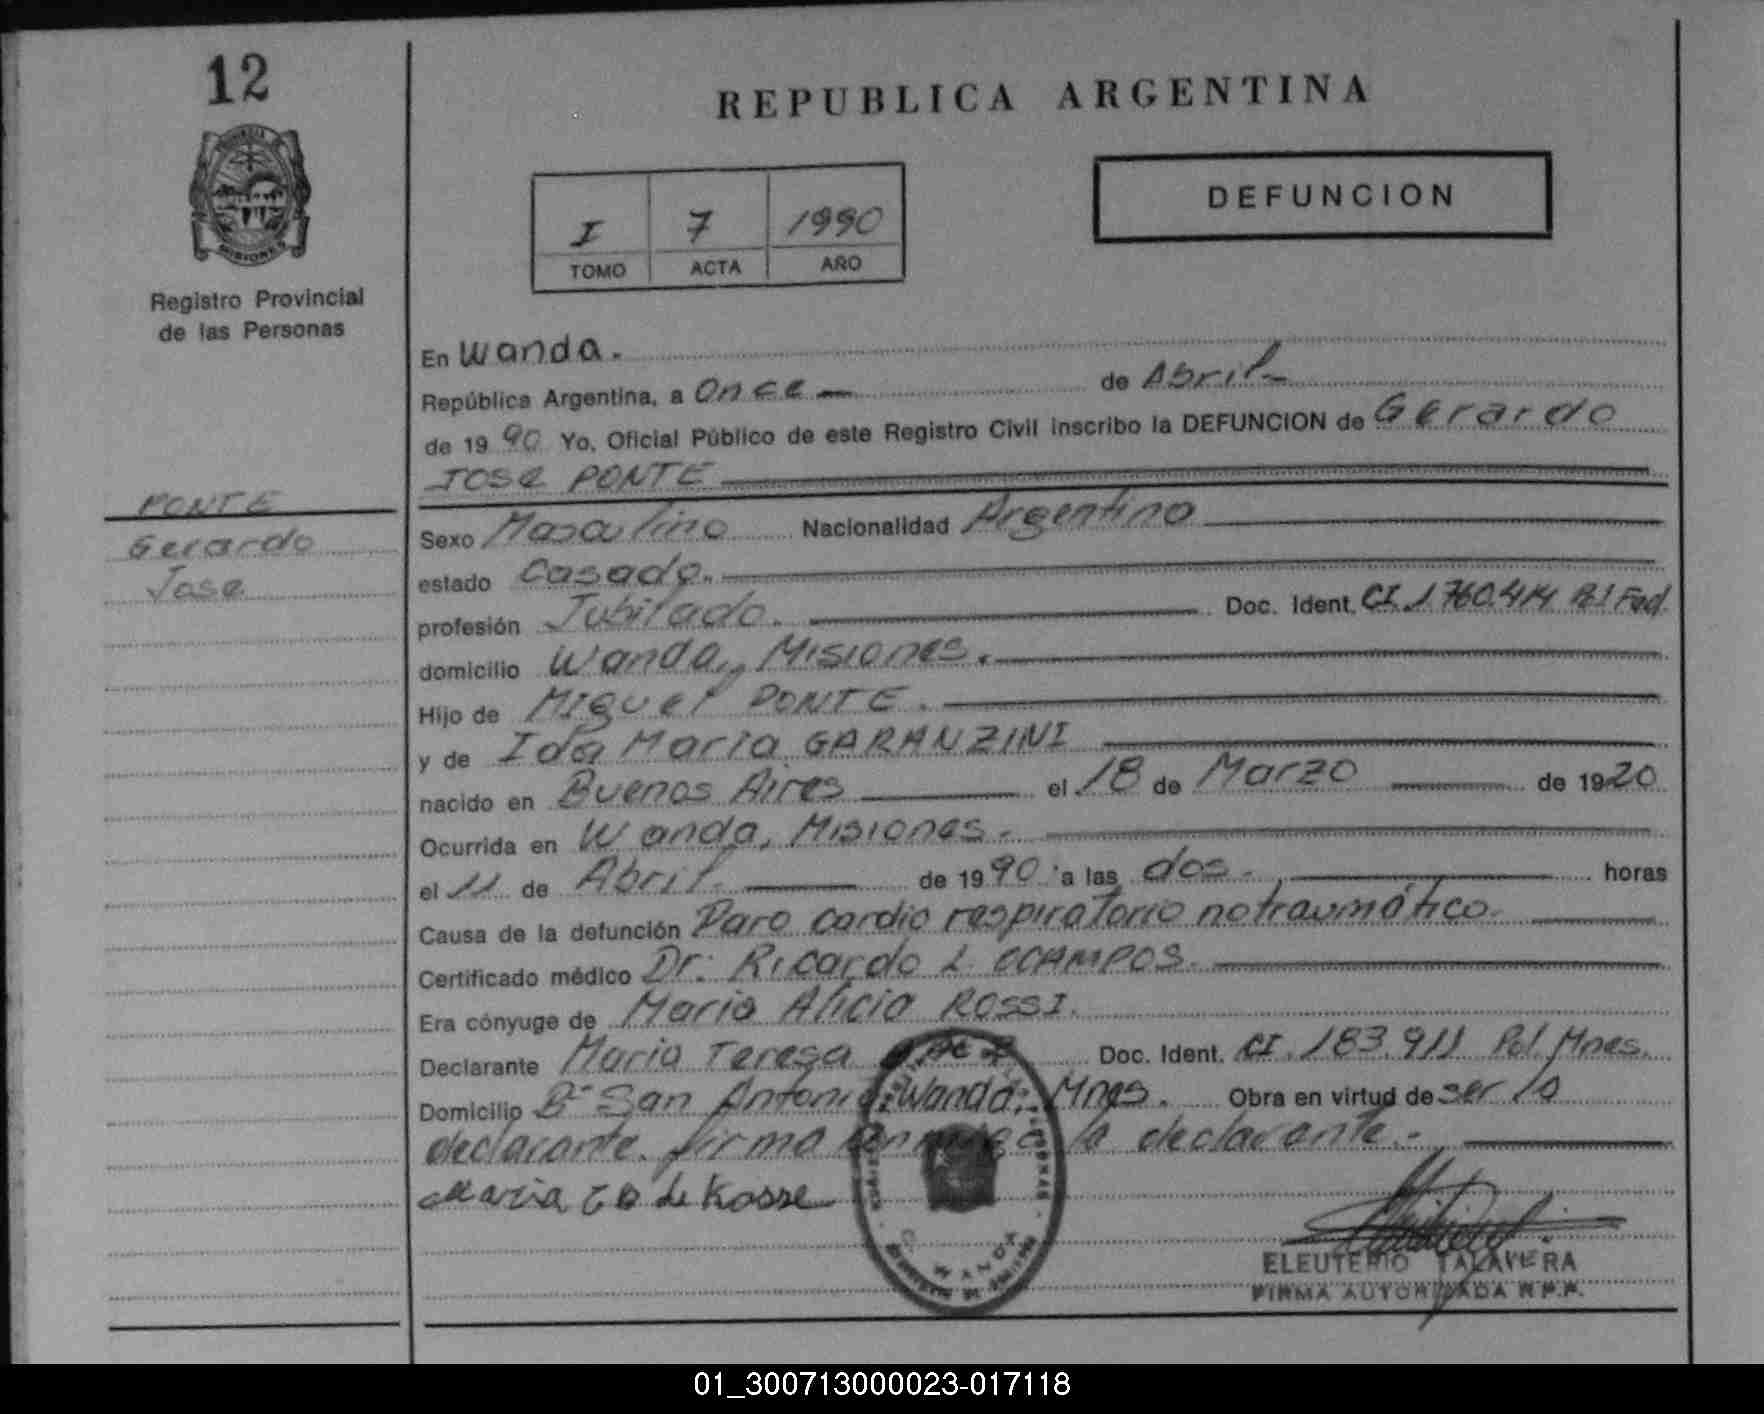 12
REPUBLICA ARGENTINA
DEFUNCION
I 7 1990
TOMO ACTA AÑO
MISIONES
Registro Provincial
de las Personas
En Wanda.
República Argentina, a Once de Abril
de 19 90 Yo, Oficial Público de este Registro Civil inscribo la DEFUNCION de Gerardo
Jose PONTE
PONTE
Gerardo
Jose
Sexo Masculino Nacionalidad Argentino
estado Casado.
profesión Jubilado. Doc. Ident. CI. 1760.414 Pol Fed.
domicilio Wanda, Misiones.
Hijo de Miguel PONTE.
y de Ida Maria GARANZINI
nacido en Buenos Aires el 18 de Marzo de 1920
Ocurrida en Wanda, Misiones.
el 11 de Abril de 19 90 a las dos. horas
Causa de la defunción Paro cardio respiratorio no traumático.
Certificado médico Dr: Ricardo L. OCAMPOS.
Era cónyuge de Maria Alicia ROSSI.
Declarante Maria Teresa Doc. Ident. CI. 183.911 Pol Mnes.
Domicilio Bº San Antonio, Wanda, Mnes. Obra en virtud de ser la
declarante. firma la declarante.-
Maria de Kosse
WANDA
ELEUTERIO TALAVERA
FIRMA AUTORIZADA R.P.P.
01_300713000023-017118